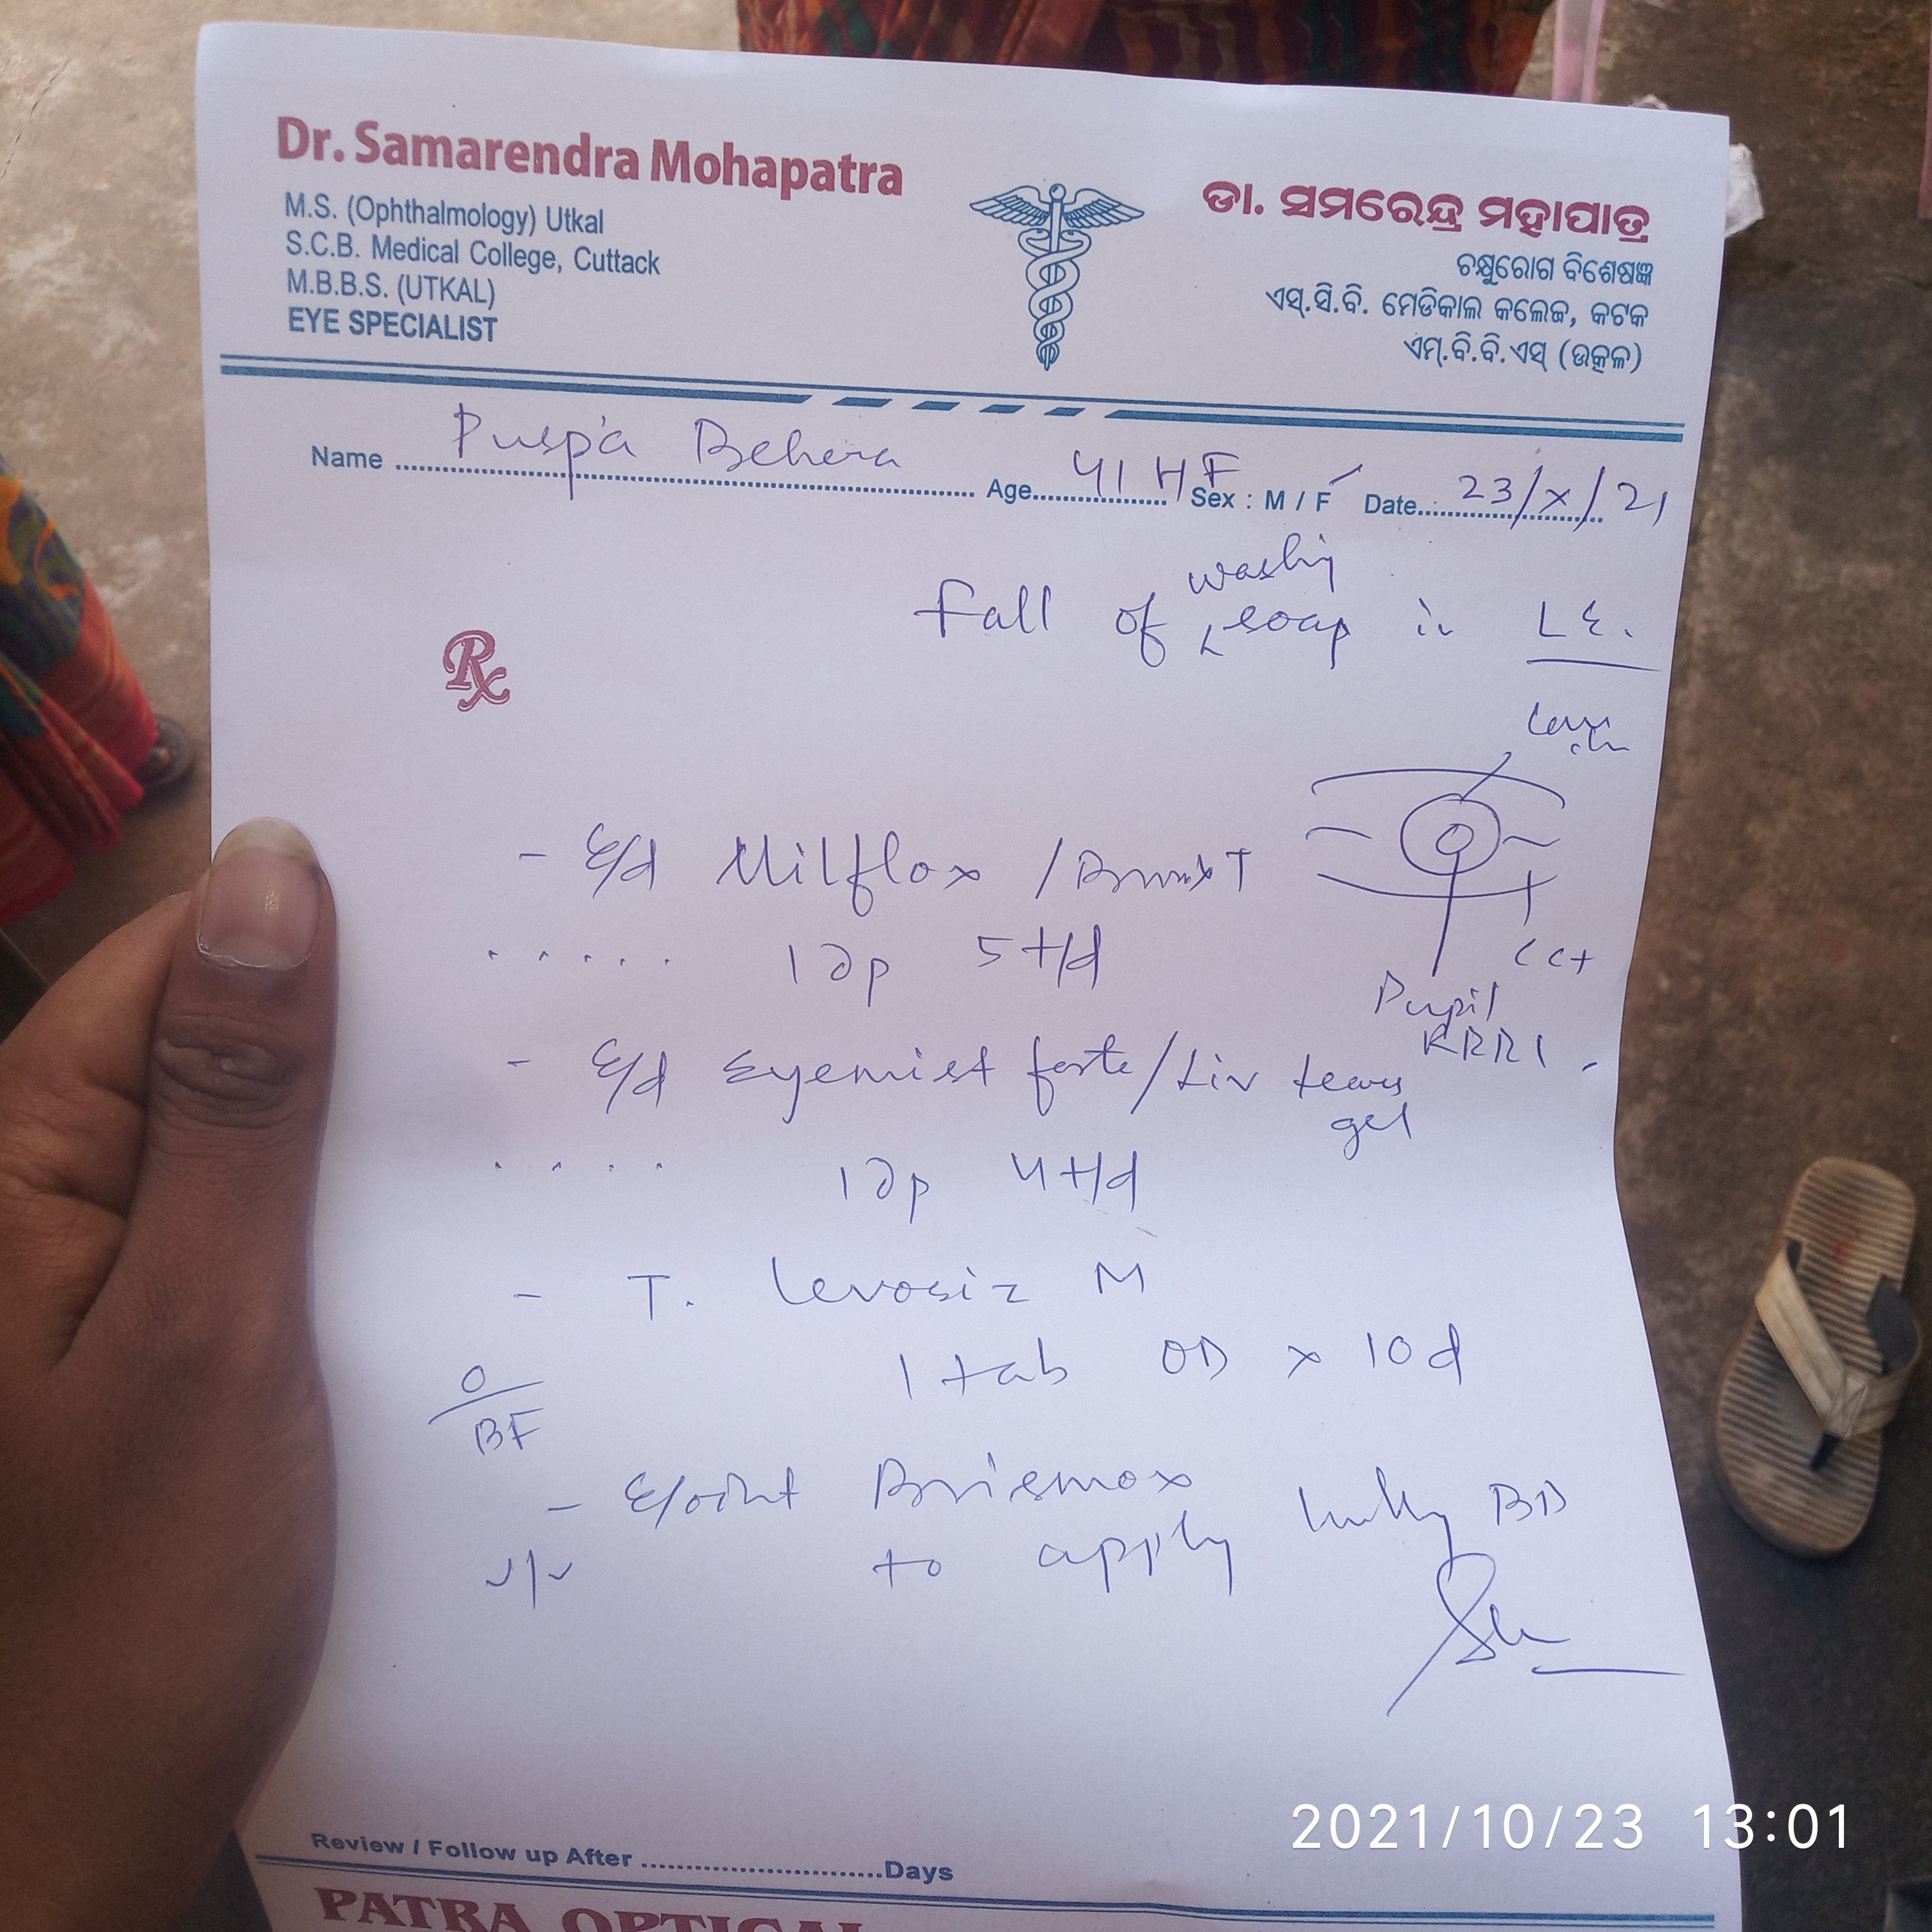 Dr. Samarendra Mohapatra
M.S. (Ophthalmology) Utkal
S.C.B. Medical College, Cuttack
M.B.B.S. (UTKAL)
EYE SPECIALIST
ଡା. ସମରେନ୍ଦ୍ର ମହାପାତ୍ର
ଚକ୍ଷୁରୋଗ ବିଶେଷଜ୍ଞ
ଏସ୍.ସି.ବି. ମେଡିକାଲ କଲେଜ, କଟକ
ଏମ୍.ବି.ବି.ଏସ୍ (ଉତ୍କଳ)
Name Puspa Behera Age 41 HF Sex : M / F Date 23/x/21
Fall of washing soap in LE.
Rx
- E/d Milflox /
1 dp 5 t/d
CC+
Pupil
RRRL
- E/d Eyemist forte/Liv tears
gel
1 dp 4 t/d
- T. Levosiz M
1 tab OD x 10 d
O
BF
- E/oint Brismox
to apply BD
Review / Follow up After Days
PATRA OPTICAL
2021/10/23 13:01